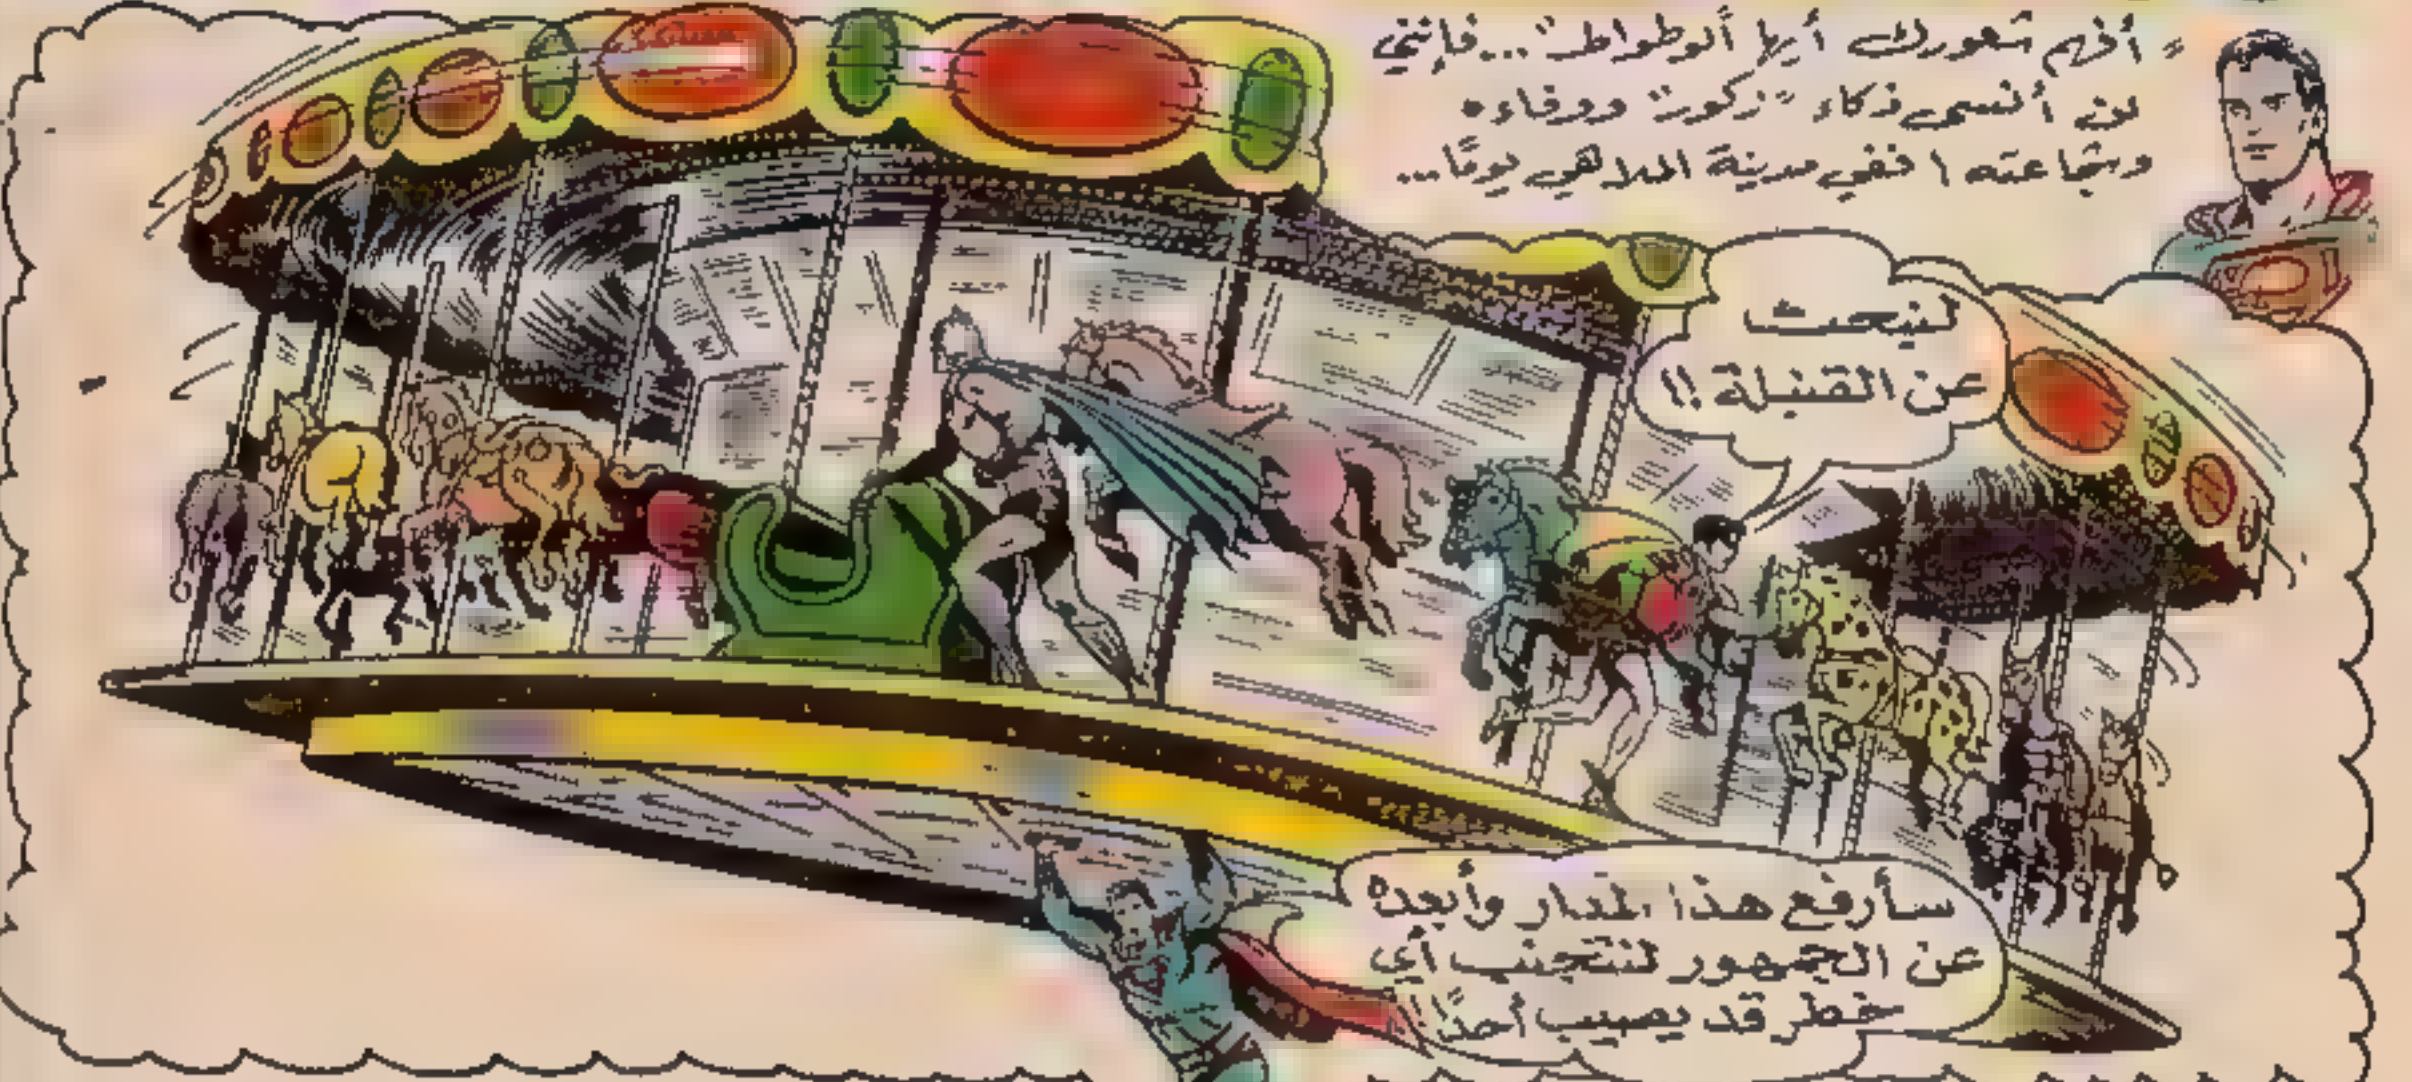 "أفهم شعورك أيها ألوطواط"... فإنني
لن أنسى ذكاء "زكور" ووفاءه
وشجاعته ! ففي مدينة الملاهي يومًا...
لنبحث
عن القنبلة !!
سأرفع هذا المدار وأبعده
عن الجمهور لنتجنب أي
خطر قد يصيب أحدًا